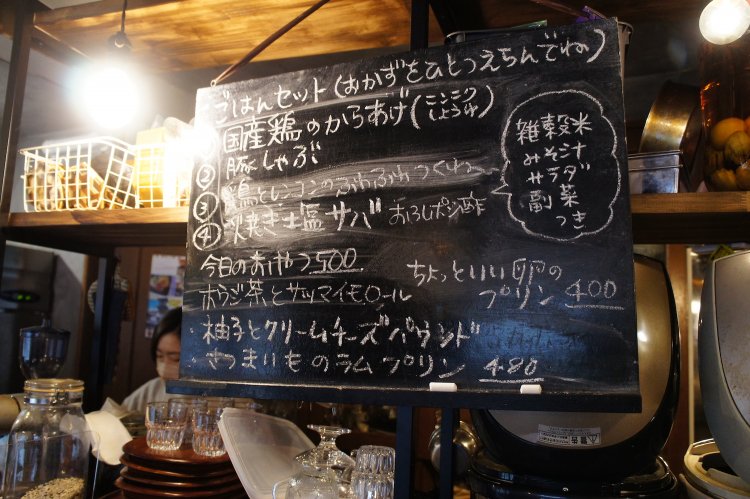 ごはんセット(おかずをひとつえらんでね)
国産鶏のからあげ(ニンニクしょうゆ)
② 豚しゃぶ
③ 鶏とレンコンのふわふわつくね
④ 炭焼き塩サバ おろしポン酢
雑穀米
みそ汁
サラダ
副菜
つき
今日のおやつ 500
ホウジ茶とサツマイモロール
ちょっといい卵の
プリン 400
・柚子とクリームチーズパウンド
・さつまいものラムプリン 480
警告